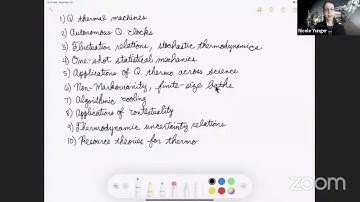 1) Q thermal machines
2) Autonomous Q clocks
3) Fluctuation relations, stochastic thermodynamics
4) One-shot statistical mechanics
5) Applications of Q thermo across science
6) Non-Markovianity, finite-size baths
7) Algorithmic cooling
8) Applications of contextuality
9) Thermodynamic uncertainty relations
10) Resource theories for thermo
Nicole Yunger
zoom